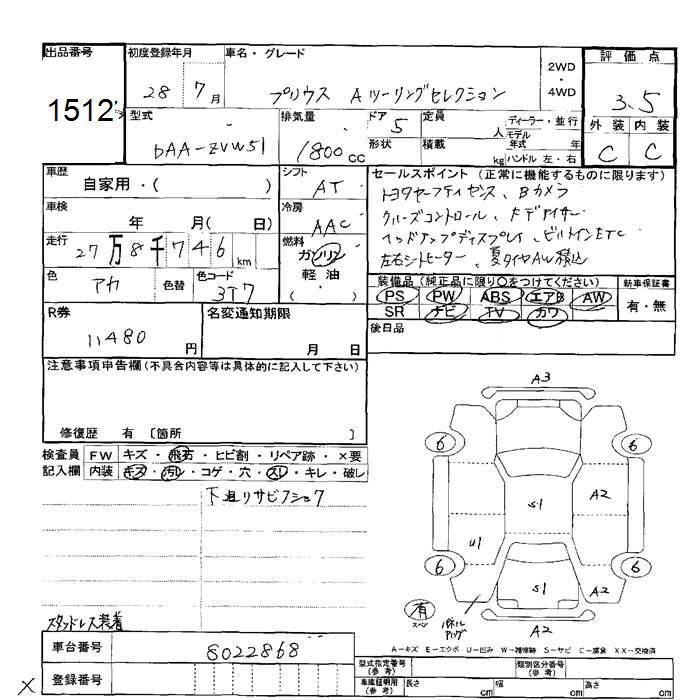 出品番号 初度登録年月 車名・グレード 2WD・4WD 評価点
1512 28 7月 プリウス Aツーリングセレクション 3.5
型式 排気量 ドア 5 定員 人 ディーラー・並行 外装 内装
DAA-ZVW51 1800cc 形状 積載 kg モデル年式 年 ハンドル 左・右 C C
車歴 シフト セールスポイント (正常に機能するものに限ります)
自家用・( ) AT トヨタセーフティセンス、Bカメラ
車検 年 月( 日) 冷房 AAC クルーズコントロール、
走行 27万8千746km 燃料 ガソリン ヘッドアップディスプレイ、ビルトインETC
色 色替 色コード 軽油・( ) 左右シートヒーター、夏タイヤAW積込
アカ 3T7 装備品 (純正品に限り〇をつけてください) 新車保証書
PS PW ABS エアB AW 有・無
R券 名変通知期限 SR ナビ TV カワ
11480円 月 日 後日品
注意事項申告欄(不具合内容等は具体的に記入して下さい)
修復歴 有 〔箇所 〕
検査員 FW キズ・飛石・ヒビ割・リペア跡・×要
記入欄 内装 キズ・汚レ・コゲ・穴・スレ・キレ・破レ
下廻りサビフショク
A3
6 6
S1 A2
U1
6 6
S1 A2
有 スペア パネル
A2
スタッドレス装着
A-キズ E-エクボ U-凹み W-補修跡 S-サビ C-腐食 XX-交換済
車台番号 8022868 型式指定番号(参考) 類別区分番号(参考)
× 登録番号 車庫証明用(参考) 長さ cm 幅 cm 高さ cm